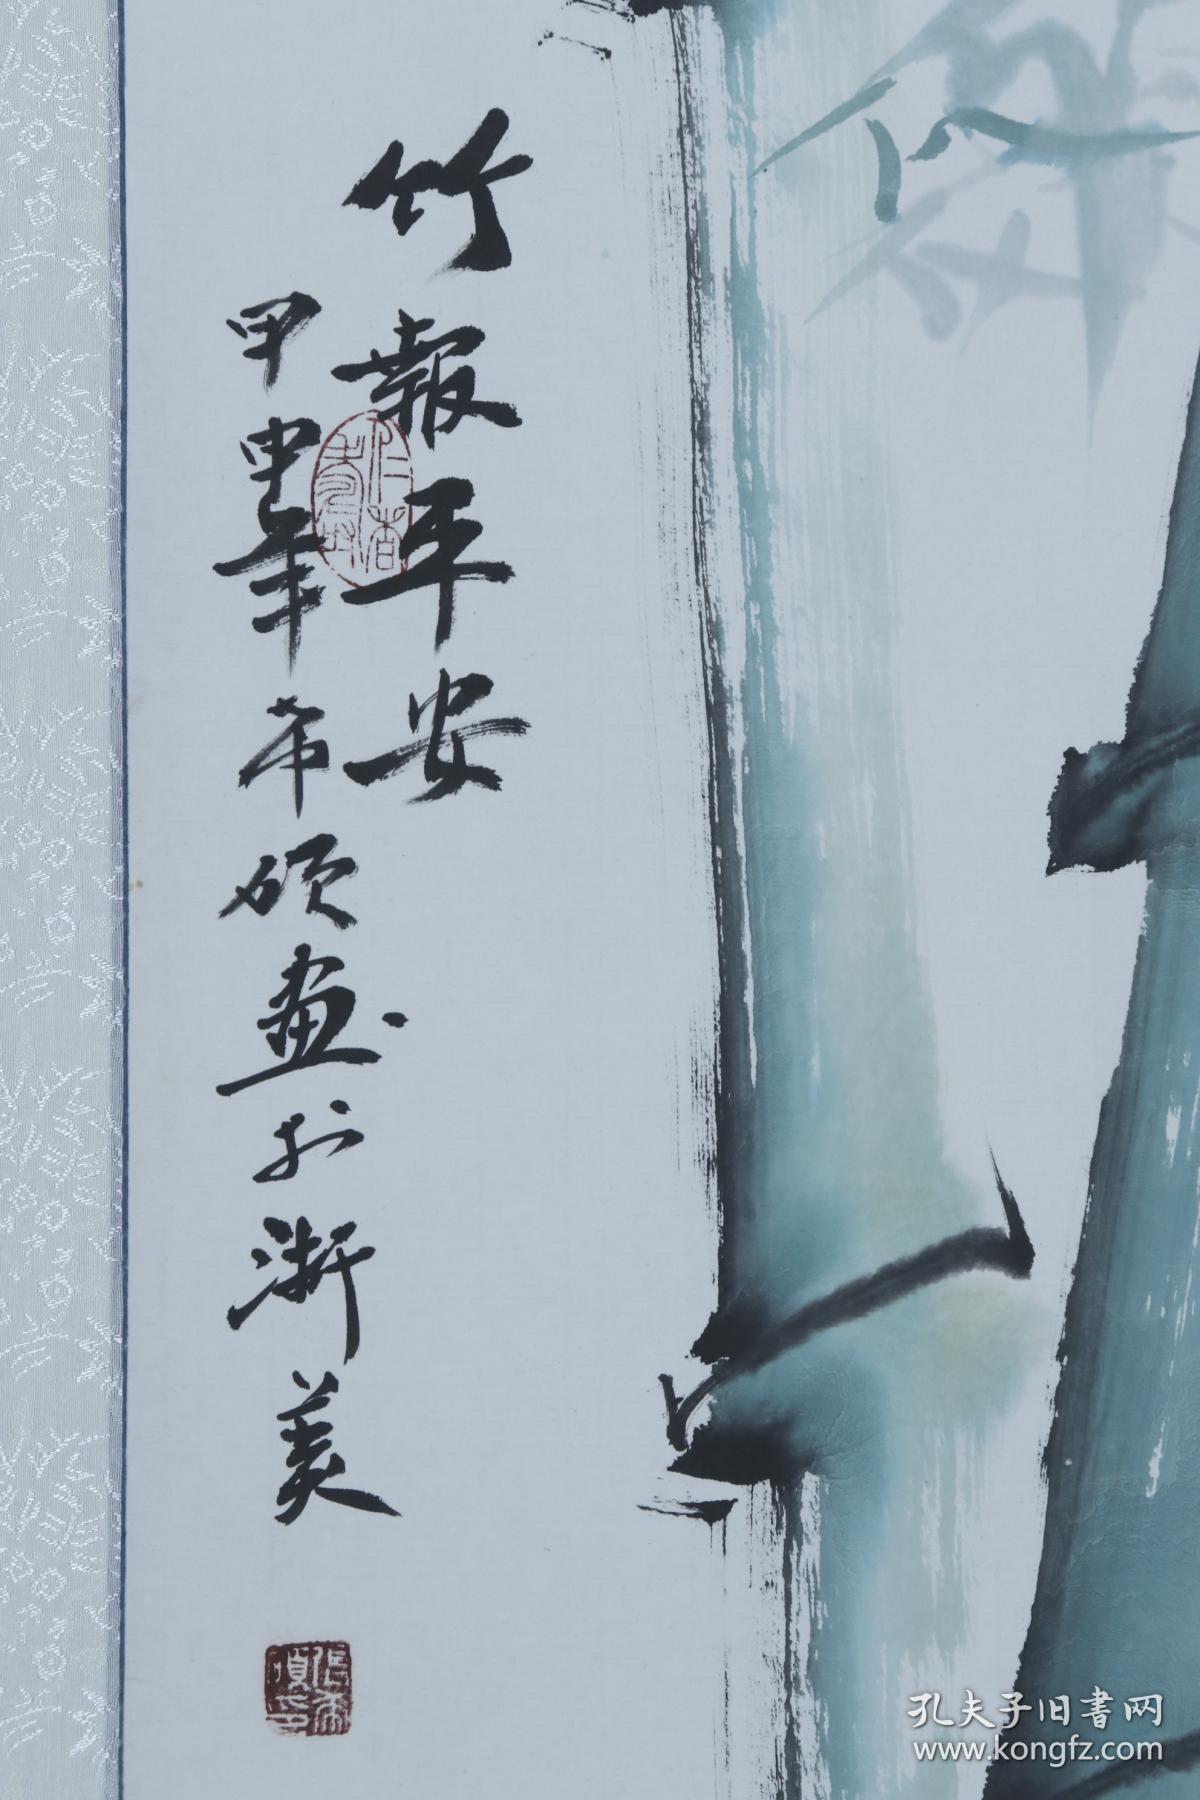 竹報平安
甲申年畫於浙美
孔夫子旧书网
www.kongfz.com